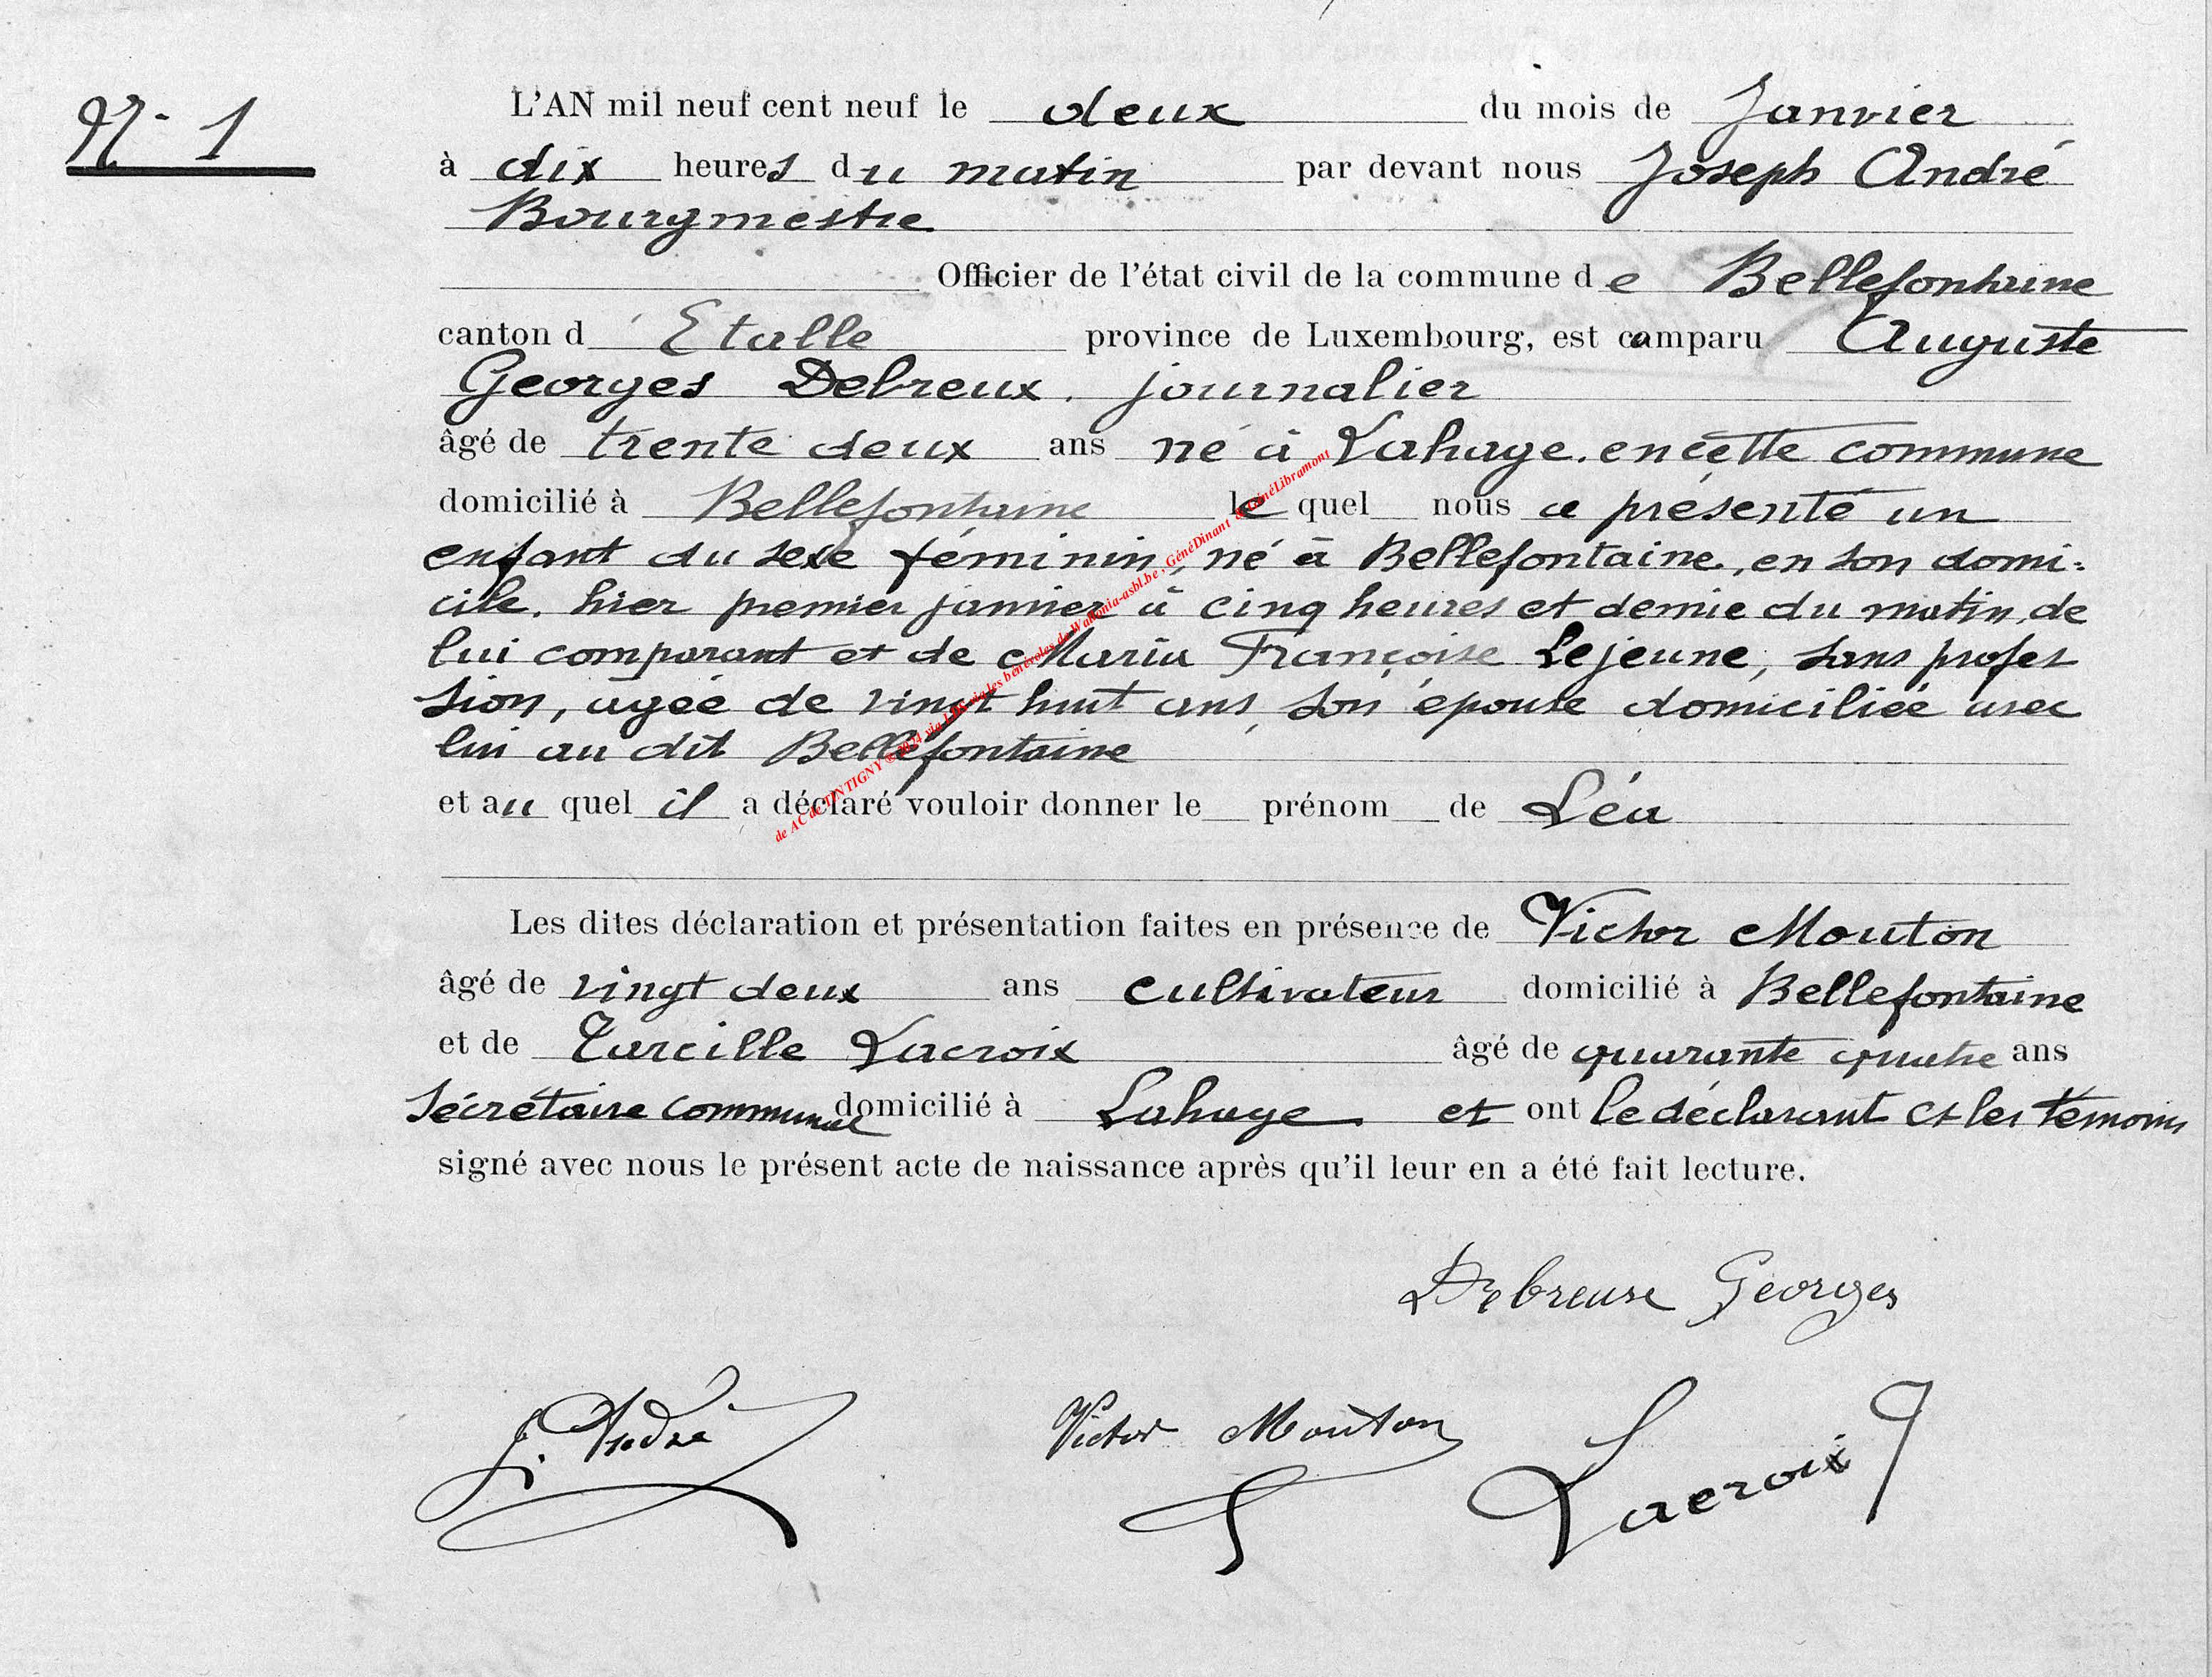 N° 1
L'AN mil neuf cent neuf le deux du mois de Janvier
à dix heures du matin par devant nous Joseph André
Bourgmestre
Officier de l'état civil de la commune de Bellefontaine
canton d'Etalle province de Luxembourg, est comparu Auguste
Georges Debreux. journalier
âgé de trente deux ans né à Lahage. en cette commune
domicilié à Bellefontaine lequel nous a présenté un
enfant du sexe féminin, né à Bellefontaine, en son domi-
cile. hier premier janvier à cinq heures et demie du matin, de
lui comparant et de Maria Françoise Lejeune, sans profes
sion, agée de vingt huit ans, son épouse domiciliée avec
lui au dit Bellefontaine
et au quel il a déclaré vouloir donner le prénom de Léa
Les dites déclaration et présentation faites en présence de Victor Mouton
âgé de vingt deux ans cultivateur domicilié à Bellefontaine
et de Tarcille Lacroix âgé de quarante quatre ans
Sécrétaire communal domicilié à Lahage et ont le déclarant et les témoins
signé avec nous le présent acte de naissance après qu'il leur en a été fait lecture.
Debreux Georges
J. André
Victor Mouton
Lacroix
de AC de TINTIGNY © 2024 via les bénévoles de Wallonia-asbl.be, GénéDinant GénéLibramont